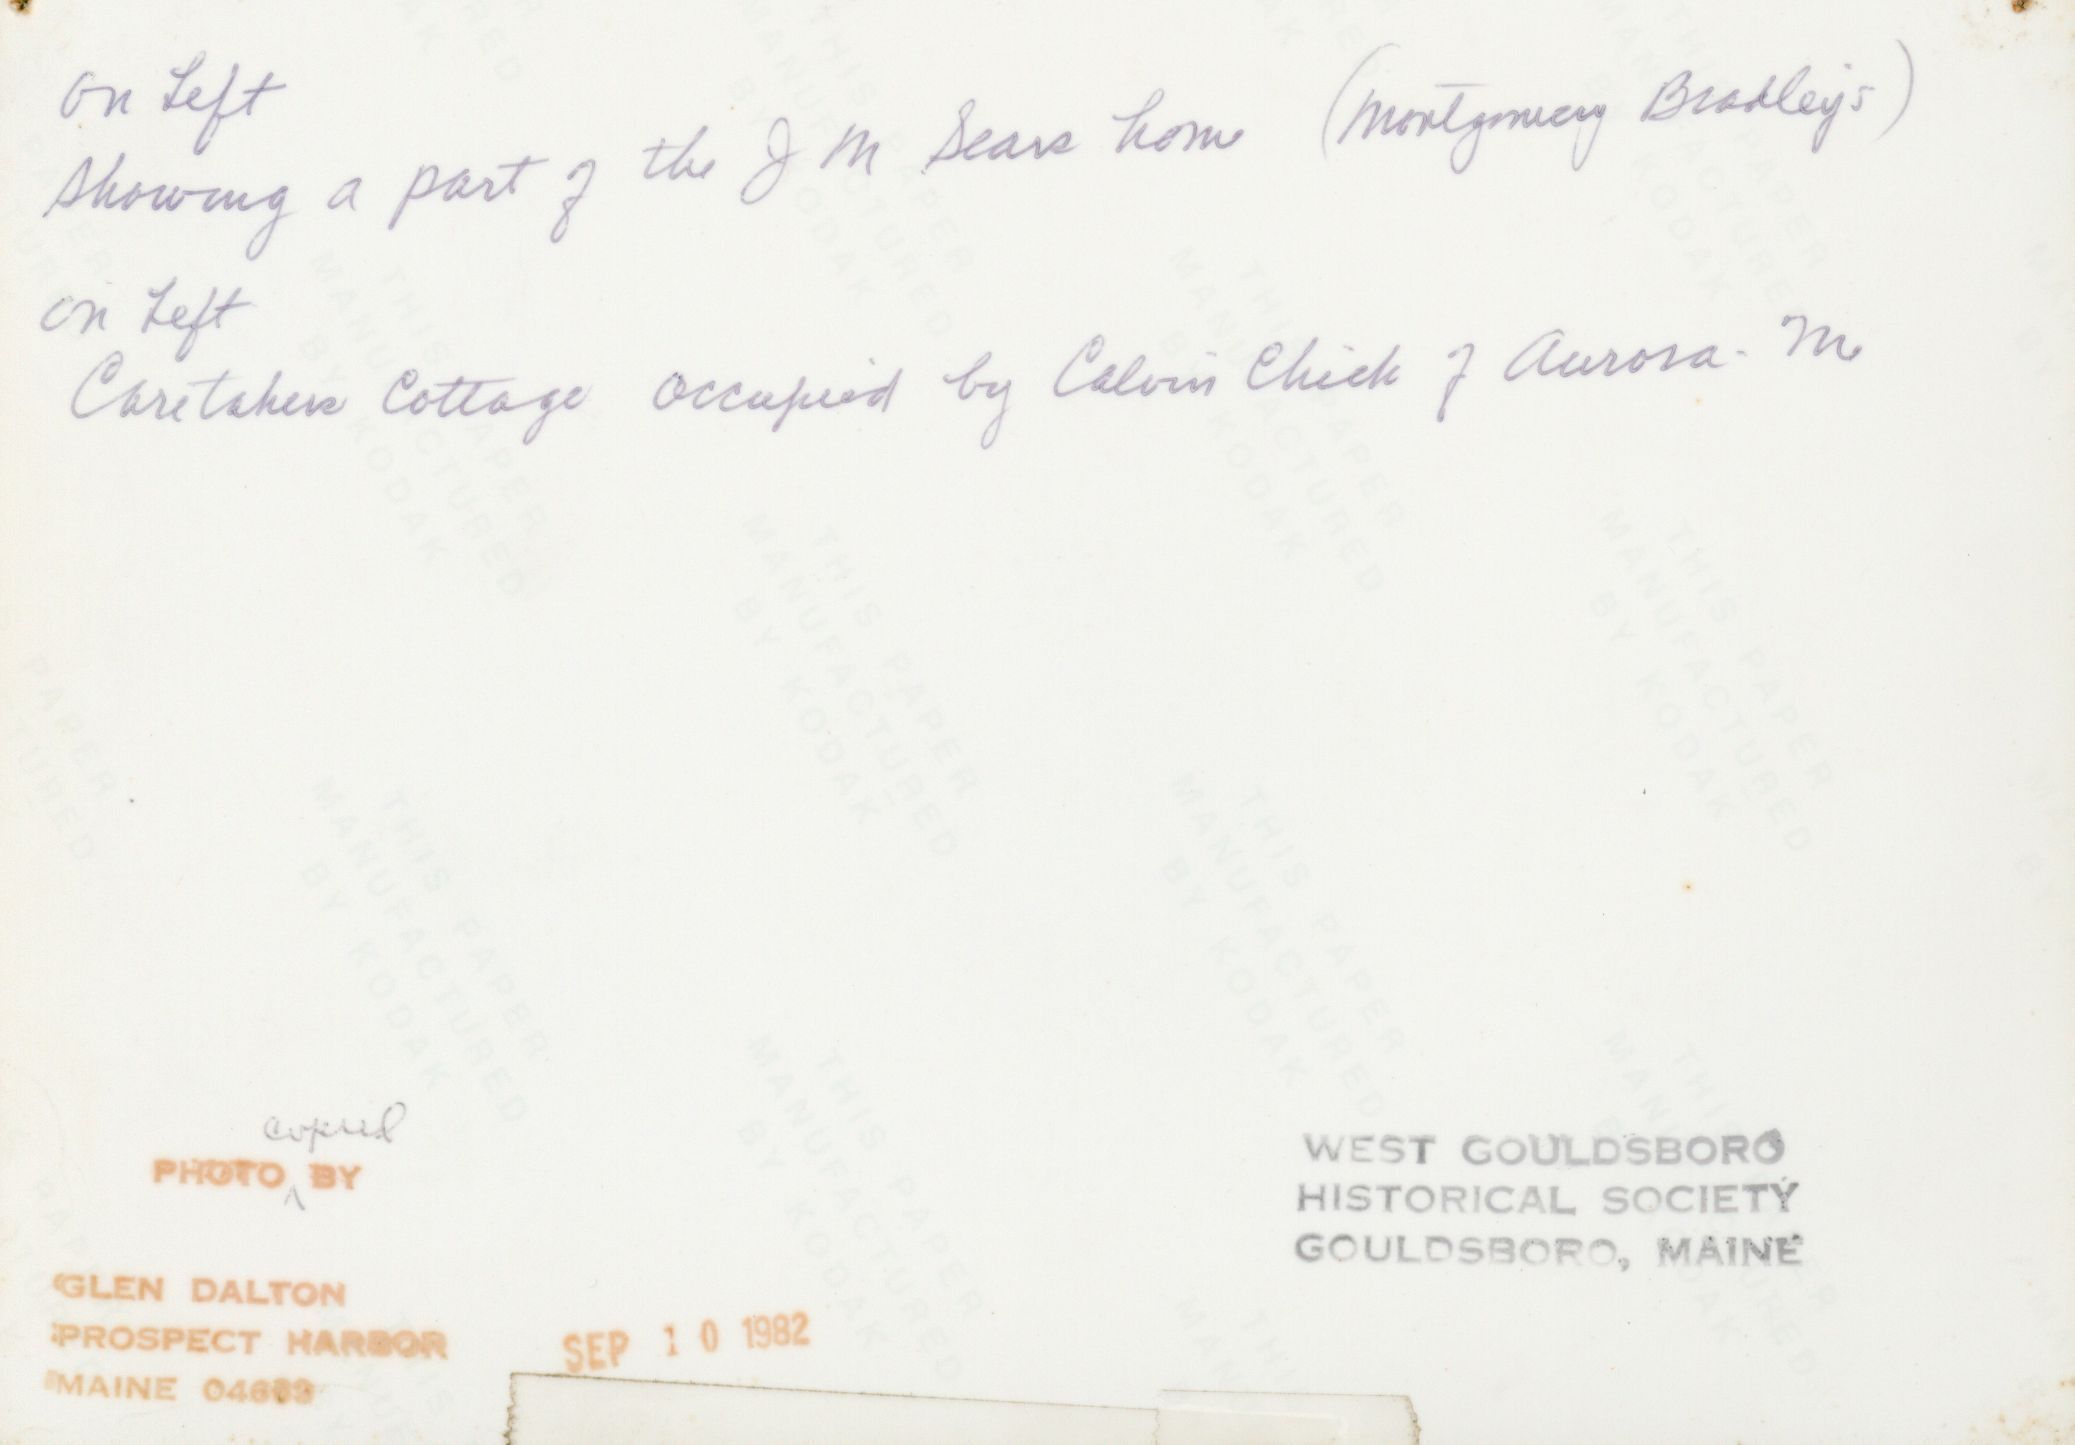 On Left
Showing a part of the J M Sears home (Montgomery Bradley's)
On Left
Caretakers Cottage occupied by Calvin Chick of Aurora - Me
copied
PHOTO ^ BY
GLEN DALTON
PROSPECT HARBOR
MAINE
SEP 10 1982
WEST GOULDSBORO
HISTORICAL SOCIETY
GOULDSBORO, MAINE
THIS PAPER
MANUFACTURED
BY KODAK